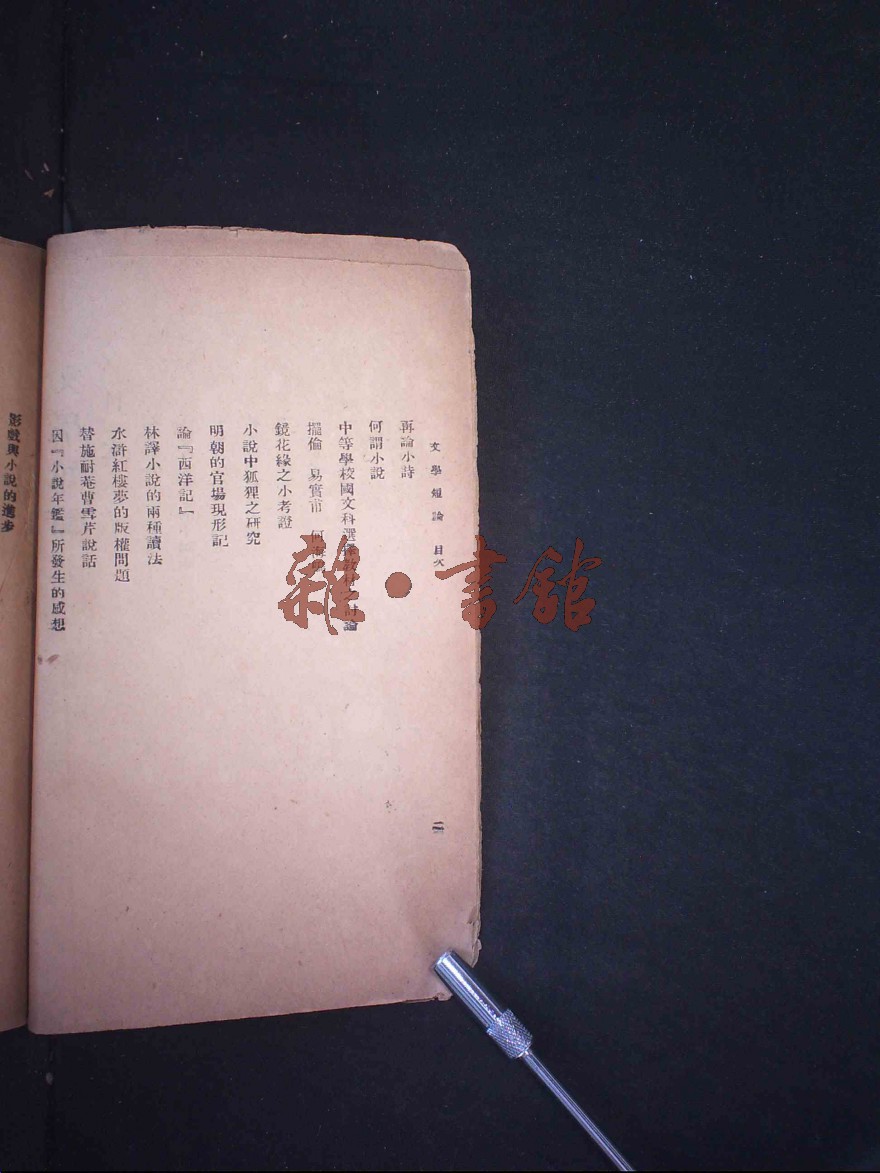 文學短論 目次
再論小詩
何謂小說
中等學校國文科選 討論
擺倫 易實甫 何
鏡花緣之小考證
小說中狐狸之研究
明朝的官場現形記
論『西洋記』
林譯小說的兩種讀法
水滸紅樓夢的版權問題
替施耐菴曹雪芹說話
因『小說年鑑』所發生的感想
二
影戲與小說的進步
雜·書館